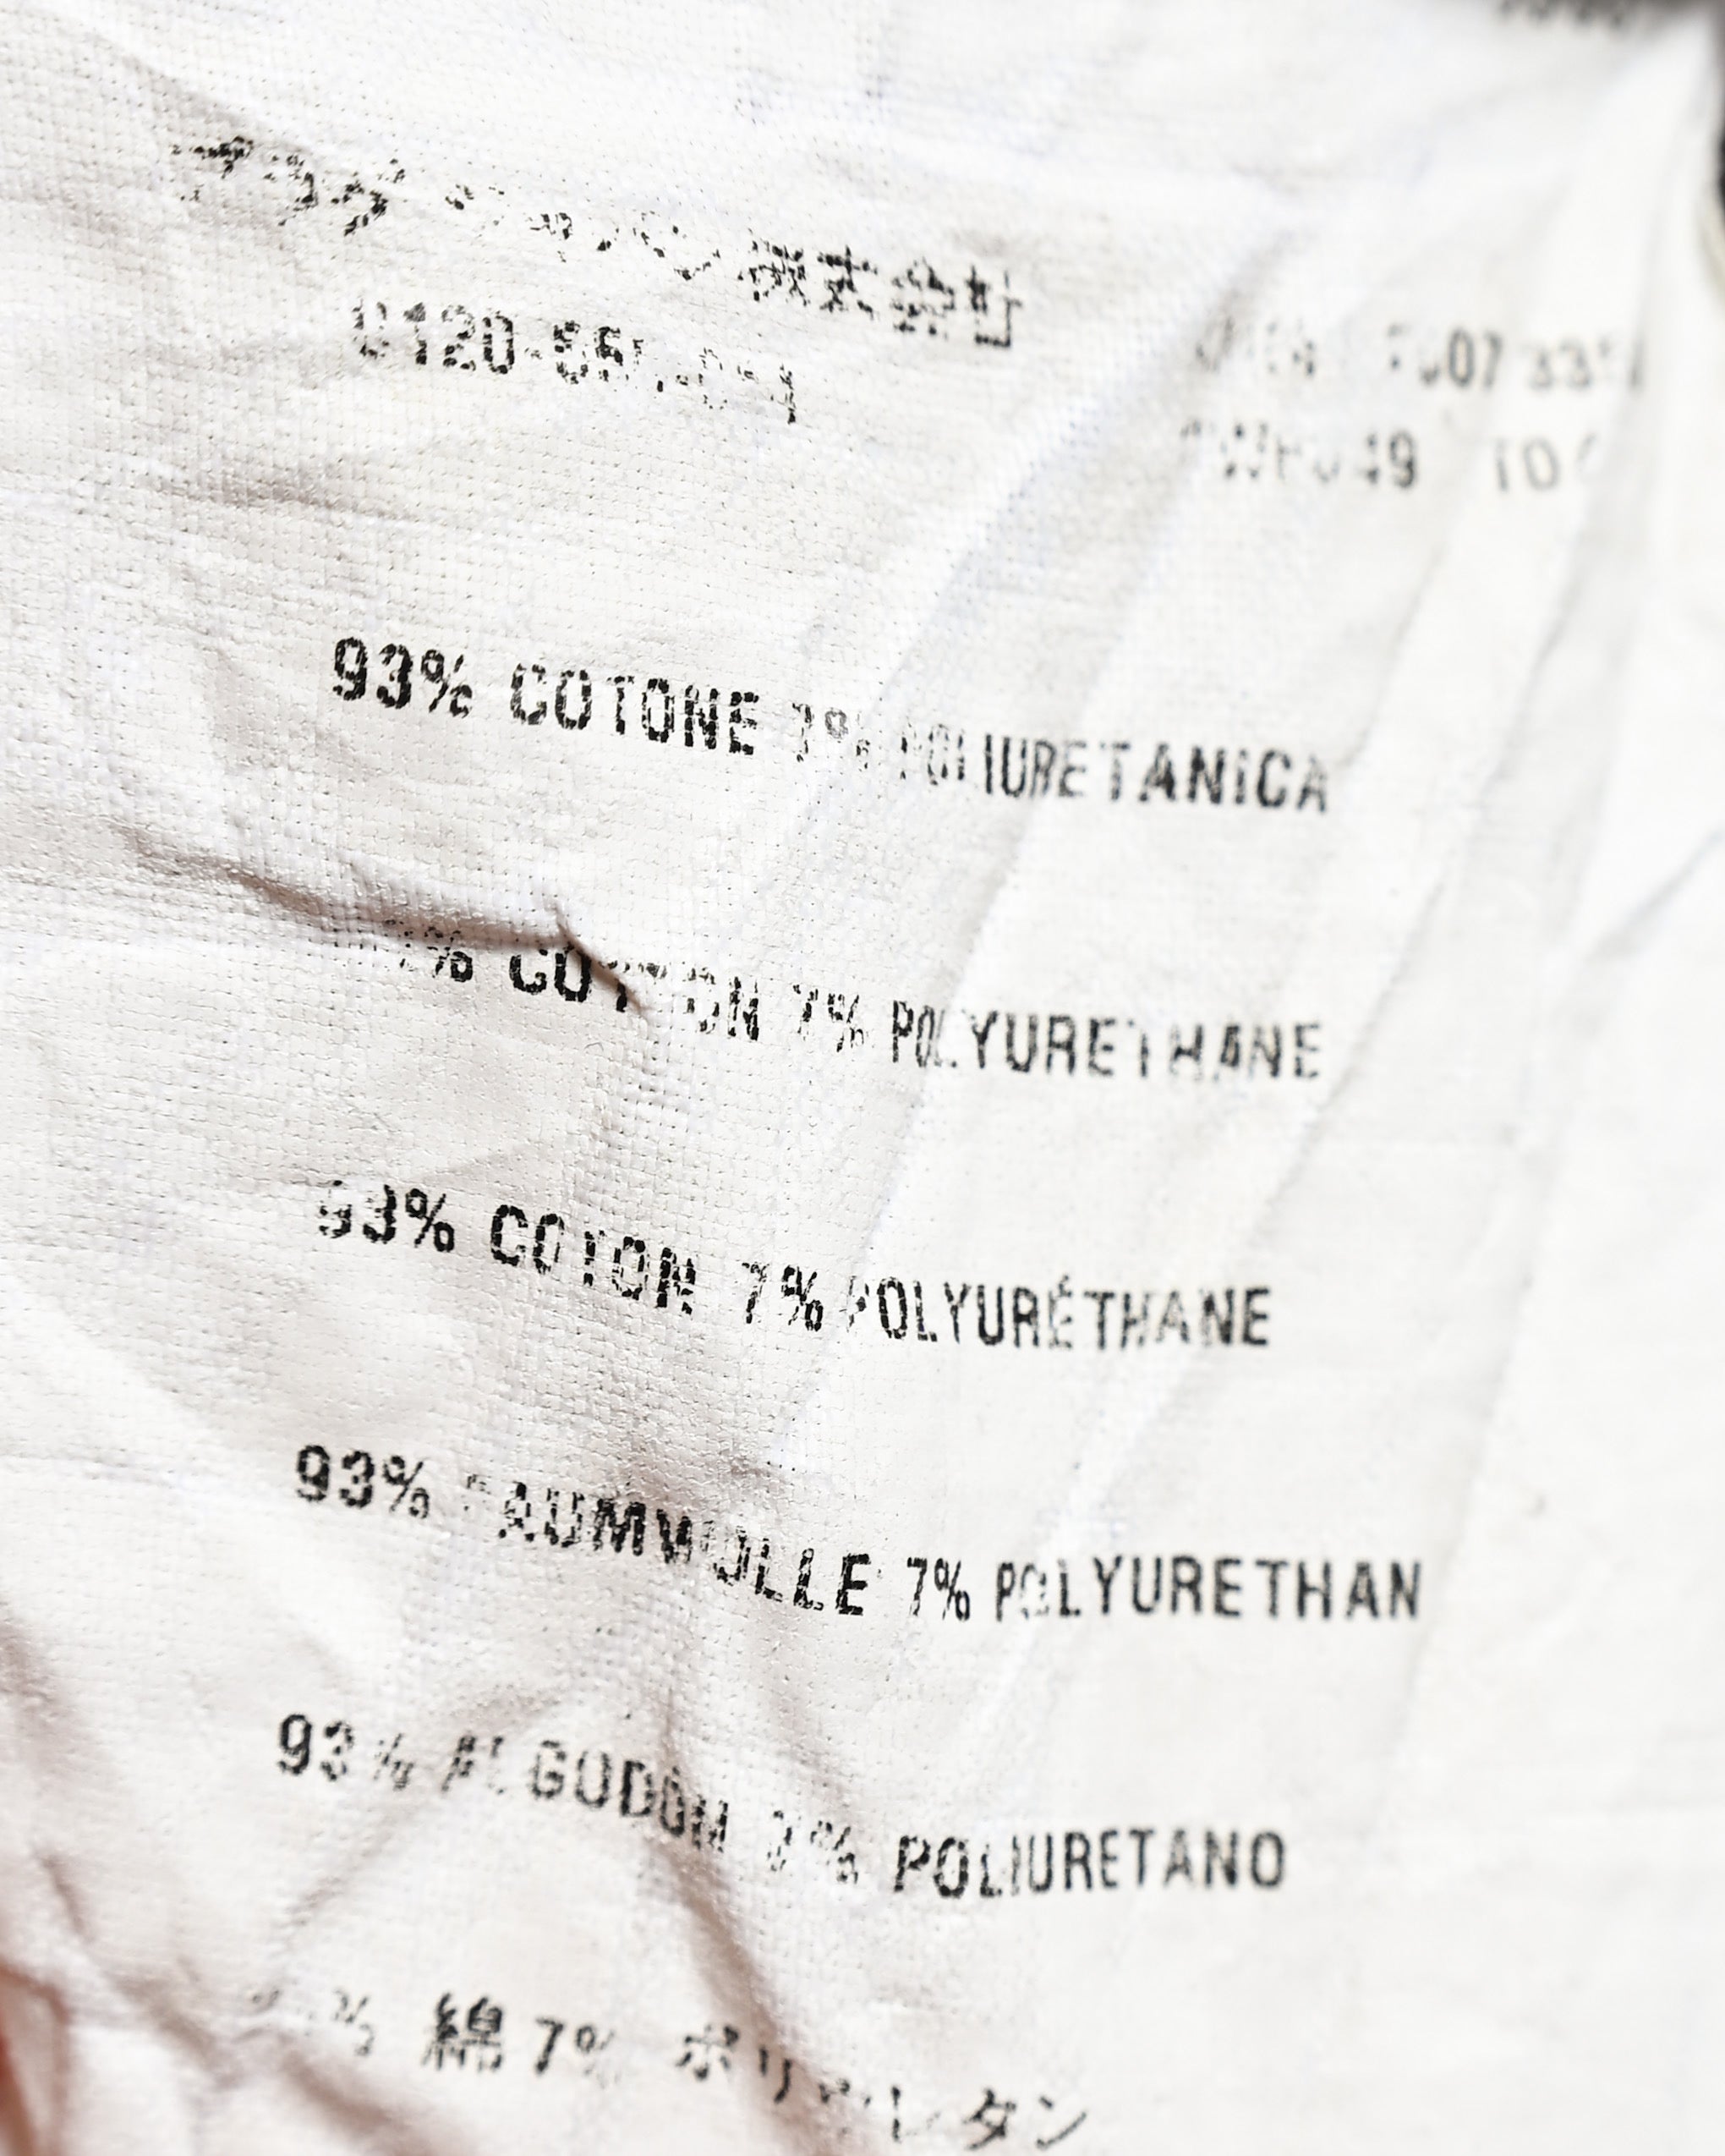 株式会社
93% COTONE 7% POLIURETANICA
% COTTON 7% POLYURETHANE
93% COTON 7% POLYURÉTHANE
93% BAUMWOLLE 7% POLYURETHAN
93% ALGODÓN 7% POLIURETANO
% 綿 7% ポリウレタン